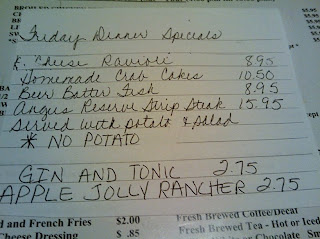 Friday Dinner Specials
F. Cheese Ravioli 8.95
Homemade Crab Cakes 10.50
Beer Batter Fish 8.95
Angus Reserve Strip Steak 15.95
Served with potato & salad
* NO POTATO
GIN AND TONIC 2.75
APPLE JOLLY RANCHER 2.75
d and French Fries $2.00
Cheese Dressing $ .85
Fresh Brewed Coffee/Decaf
Fresh Brewed Tea - Hot or Iced
Chocolate
$5.95